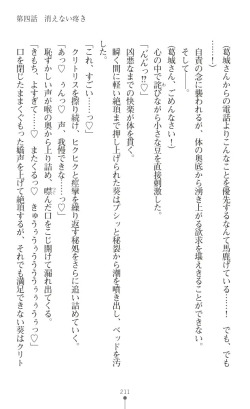 第四話　消えない疼き
（葛城さんからの電話よりこんなことを優先するなんて馬鹿げている……！　でも……！）
自責の念に襲われるが、体の奥底から湧き上がる欲求を堪えきることができない。
そして――。
（葛城さん、ごめんなさい！）
心の中で詫びながら小さな豆を直接刺激した。
「んんっ♡」
凶悪なまでの快楽が体を貫く。
瞬く間に軽い絶頂まで押し上げられた葵はプシッと秘裂から潮を噴き出し、ベッドを汚
す。
「これ、すごい……っ♡」
クリトリスを擦り続け、ヒクヒクと痙攣を繰り返す秘処にさらに指を沈めていく。
「あっ♡　うんっ♡　声、我慢できな……っ♡」
恥ずかしい声が喉の奥から上り、噤んだ口をこじ開けて溢れてくる。
「きもち、よすぎて……♡　またくるっ♡　きゅうぅぅぅぅぅぅぅっ♡」
口を閉ざしたままくぐもった嬌声を上げて絶頂するが、それでも満足できない葵はクリト
211